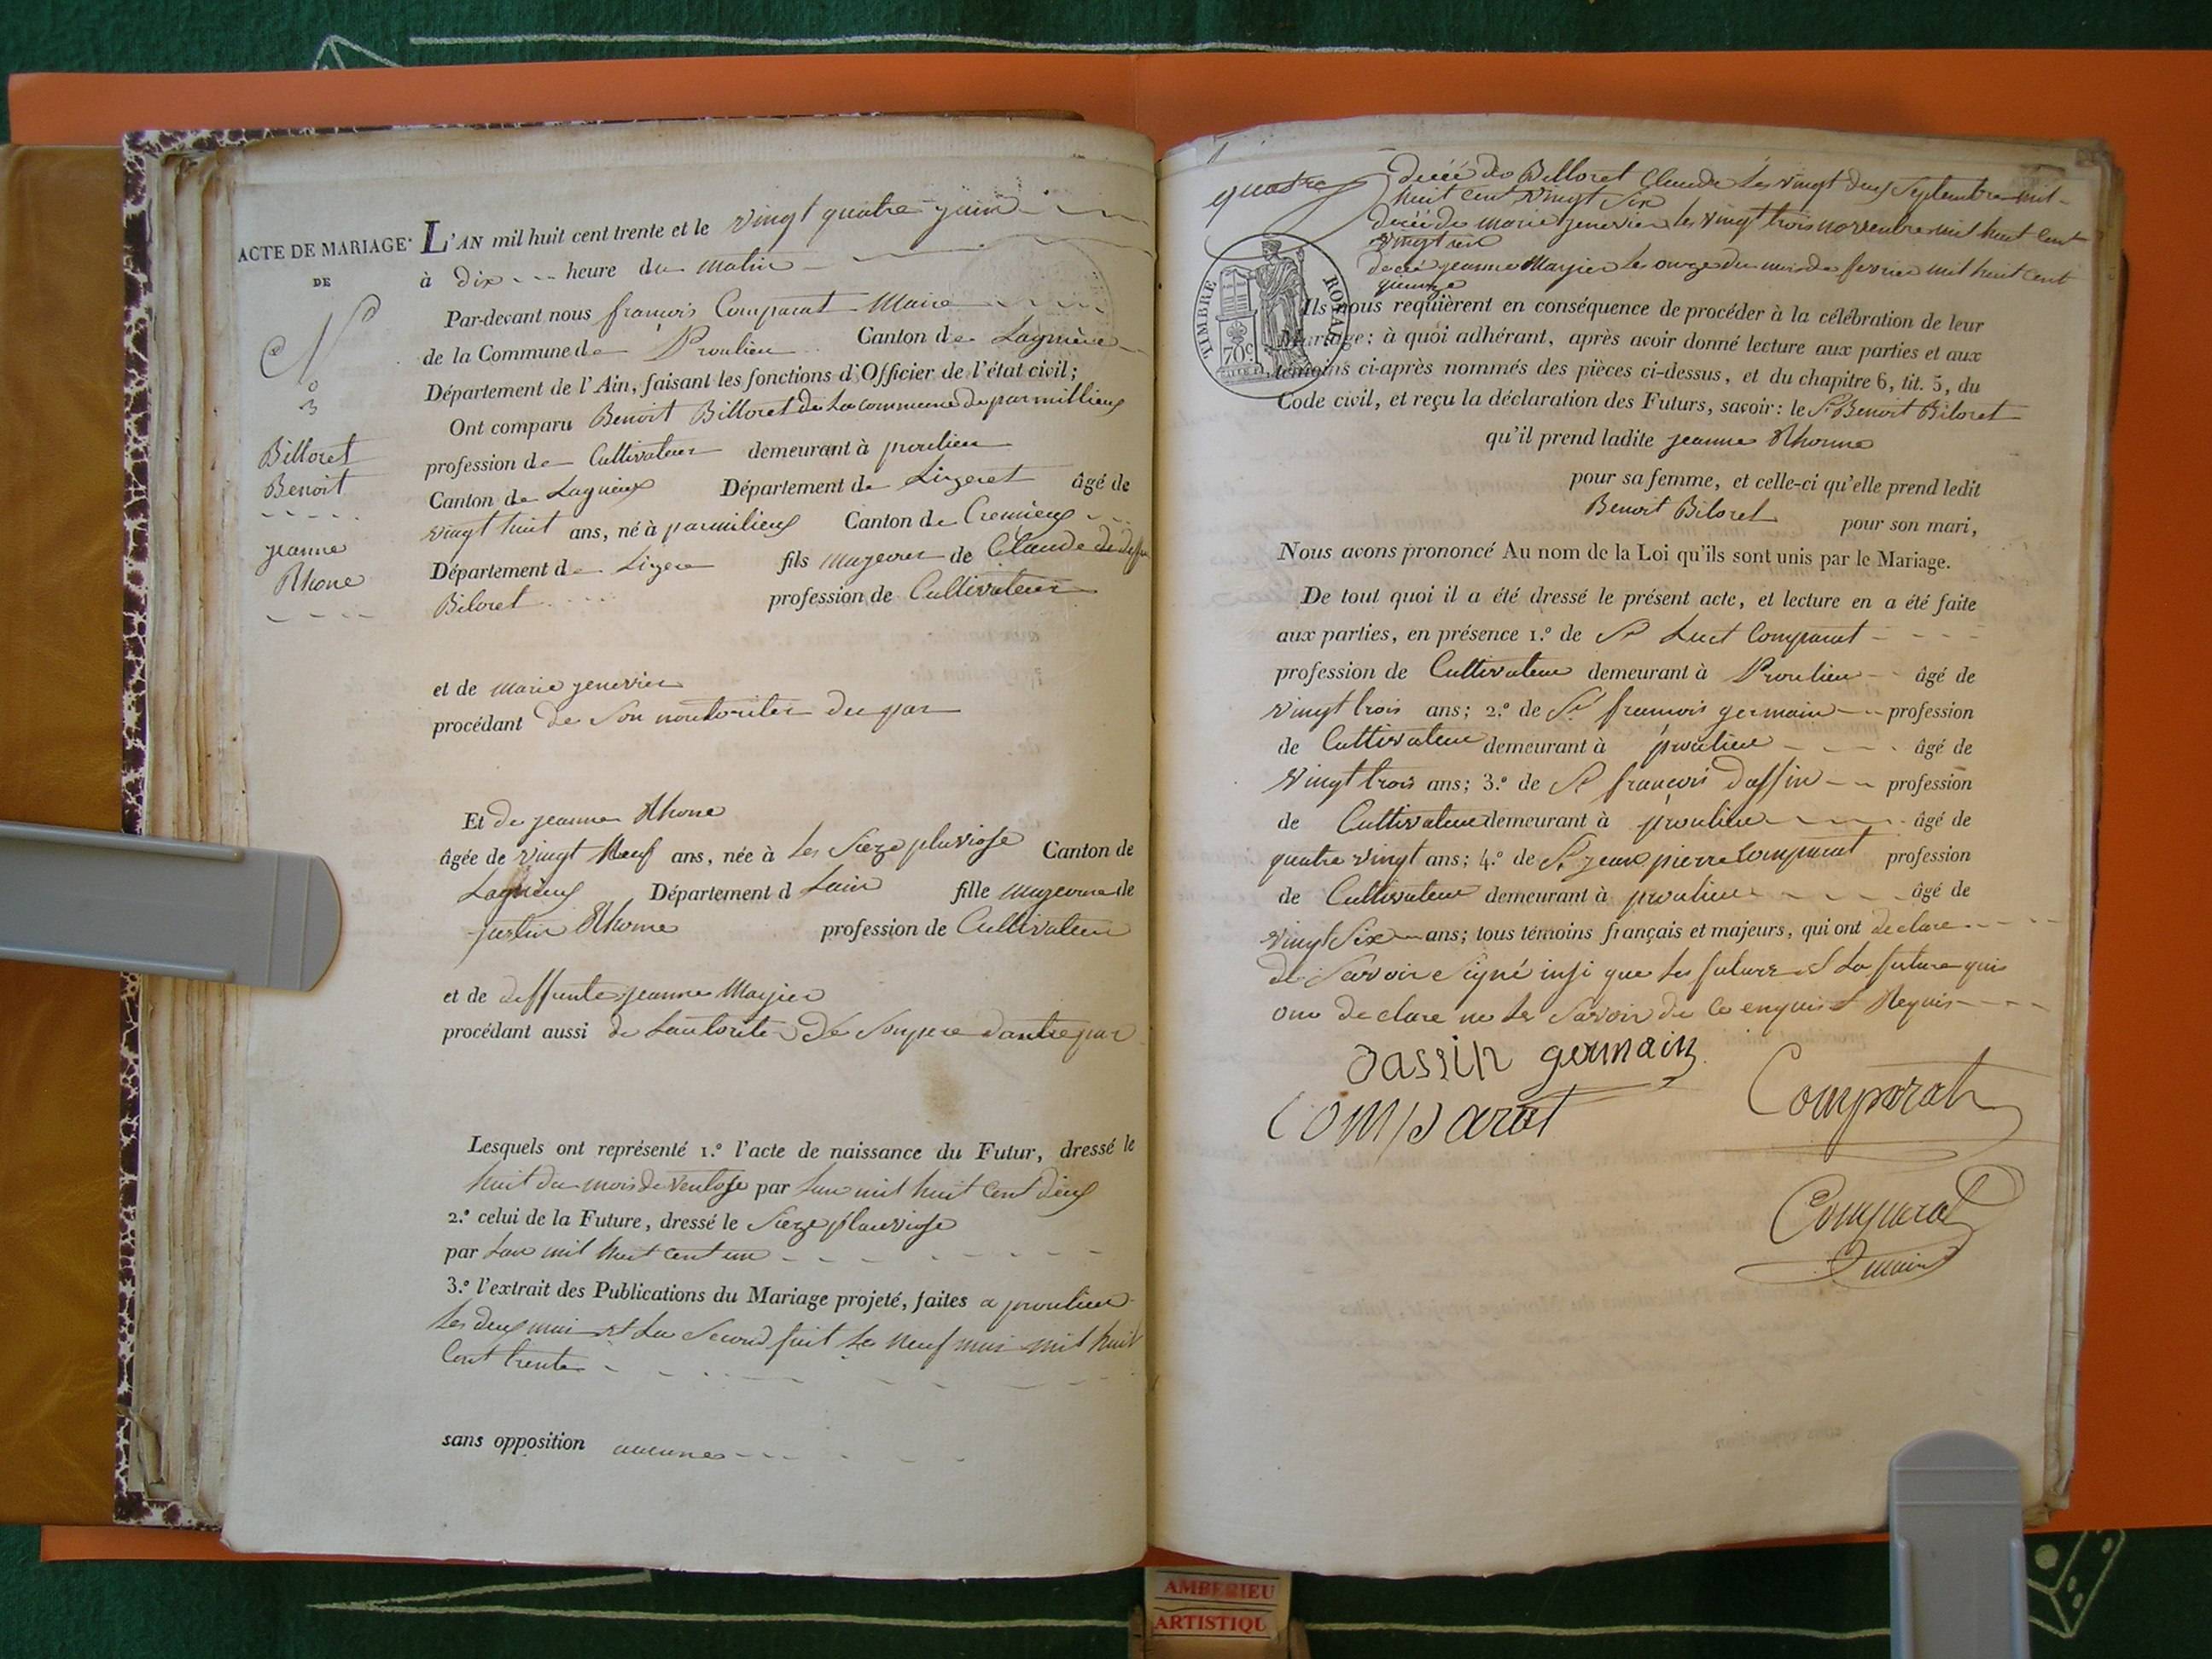 ACTE DE MARIAGE
DE
N.º 3
Billoret
Benoit
jeanne
Rhone
L'AN mil huit cent trente et le vingt quatre juin
à dix heure du matin
Par-devant nous francois Comparat Maire
de la Commune de Proulieu Canton de Lagnieu
Département de l'Ain, faisant les fonctions d'Officier de l'état civil;
Ont comparu Benoit Billoret de La commune de parmillieux
profession de Cultivateur demeurant à proulieu
Canton de Lagnieux Département de Lizeret âgé de
vingt huit ans, né à parmilieux Canton de Cremieux
Département de Lizere fils majeur de Claude
Biloret profession de Cultivateur
et de marie jenevier
procédant de Son noutoriter du par
Et de jeanne Rhone
âgée de vingt Neuf ans, née à Les Sieze pluviose Canton de
Lagnieux Département d Lain fille majeure de
Rhone profession de Cultivateur
et de deffunte jeanne Marjier
procédant aussi de Lautorite De Son pere dautre par
Lesquels ont représenté 1.º l'acte de naissance du Futur, dressé le
huit du mois de Ventose par Lan mil huit Cent deux
2.º celui de la Future, dressé le Sieze pluviose
par Lan mil huit Cent un
3.º l'extrait des Publications du Mariage projeté, faites a proulieu
Les deux mai et La Second fait Les Neuf mai mil huit
Cent trente
sans opposition aucunes
quatre
décé de Billoret Claude Les vingt deux Septembre mil
huit Cent vingt Six
décé de marie jenevier les vingt trois novembre mil huit Cent
vingt
décé jeanne Marjier Les onze du mois de fevrier mil huit Cent
quinze
TIMBRE ROYAL
70c
Ils nous requièrent en conséquence de procéder à la célébration de leur
Mariage; à quoi adhérant, après avoir donné lecture aux parties et aux
témoins ci-après nommés des pièces ci-dessus, et du chapitre 6, tit. 5, du
Code civil, et reçu la déclaration des Futurs, savoir: le Sr Benoit Biloret
qu'il prend ladite jeanne Rhonne
pour sa femme, et celle-ci qu'elle prend ledit
Benoit Biloret pour son mari,
Nous avons prononcé Au nom de la Loi qu'ils sont unis par le Mariage.
De tout quoi il a été dressé le présent acte, et lecture en a été faite
aux parties, en présence 1.º de Sr Luct Comparat
profession de Cultivateur demeurant à Proulieu âgé de
vingt trois ans; 2.º de Sr francois germain profession
de Cultivateur demeurant à proulieu âgé de
vingt trois ans; 3.º de Sr francois dassin profession
de Cultivateur demeurant à proulieu âgé de
quatre vingt ans; 4.º de Sr jean pierre Comparat profession
de Cultivateur demeurant à proulieu âgé de
vingt Six ans; tous témoins français et majeurs, qui ont declare
de Savoir Signé insi que Les future et La future qui
on declare ne Les Savoir de ce enquis et Requis
dassin germain
Comparat
Comparat
Comparat
maire
AMBERIEU
ARTISTIQU